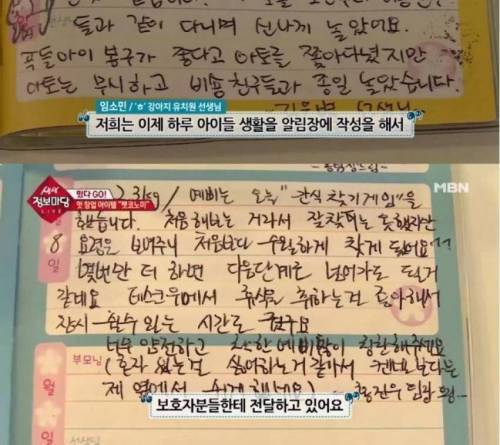 들과 같이 다니며 신나게 놀았어요.
푸들아이 봉구가 좋다고 아토를 쫓아다녔지만
아토는 무시하고 비숑친구들과 종일 놀았습니다.
임소민 / 'ㅎ' 강아지 유치원 선생님
저희는 이제 하루 아이들 생활을 알림장에 작성을 해서
생생
정보마당
LIVE
떴다GO!
핫 창업 아이템 "펫코노미"
MBN
3kg / 예삐는 오늘 "간식 찾기게임"을
했습니다. 처음해보는 거라서 잘찾지는 못했지만
8 요령은 보여주니 처음보다 수월하게 찾게 됐어요
일 몇번만 더 하면 다음단계로 넘어가도 될거
같네요 데스크위에서 휴식을 취하는걸 좋아해서
잠시 쉴수 있는 시간도 줬구요
너무 얌전하고 착한 예삐 많이 칭찬해주세요
부모님
(혼자 있는걸 싫어하는거 같아서 케넬보다는
제 옆에서 쉬게 해네요)
월
일
보호자분들한테 전달하고 있어요
선생님